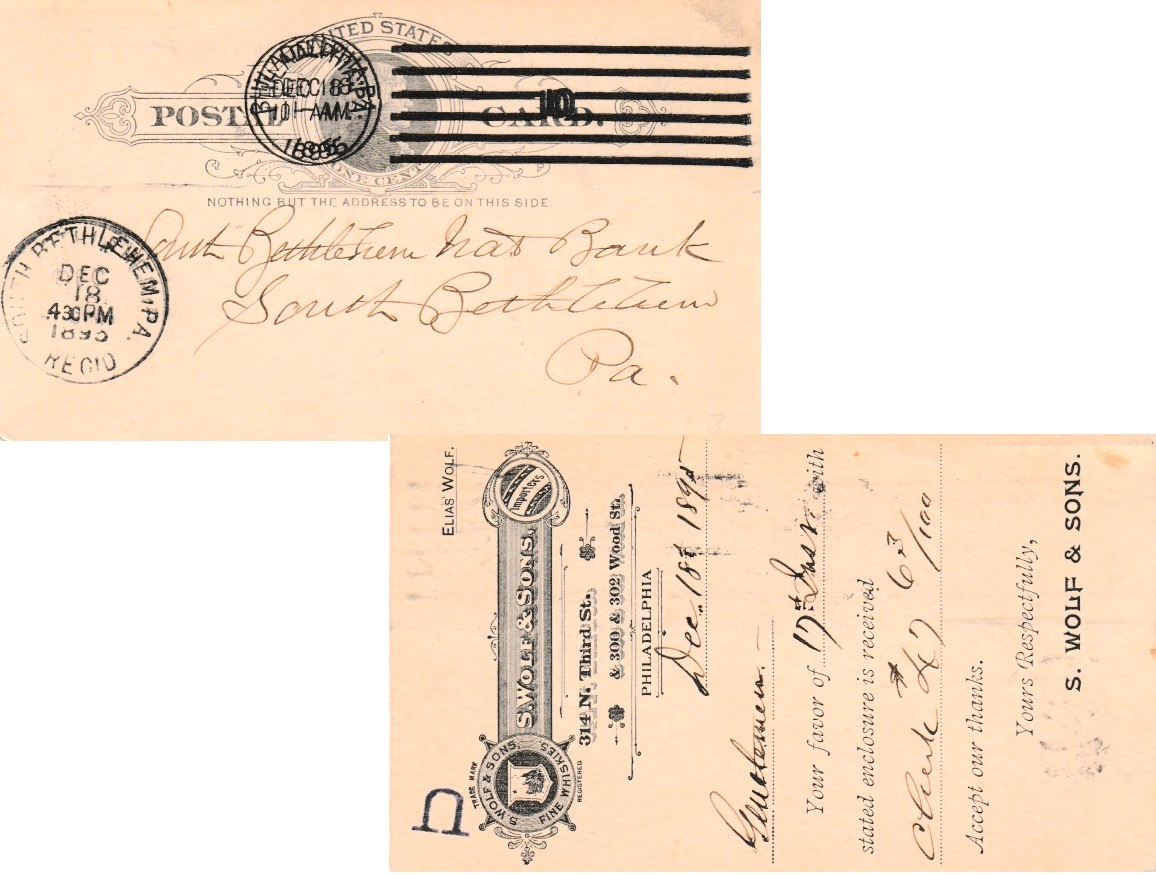 UNITED STATES
POSTAL CARD.
ONE CENT
PHILADELPHIA, PA
DEC 18
10 - AM
1895
NOTHING BUT THE ADDRESS TO BE ON THIS SIDE.
South Bethlehem Nat Bank
South Bethlehem
Pa.
SOUTH BETHLEHEM, PA.
DEC
18
4 30 PM
1895
REC'D
ELIAS WOLF.
Importers
S. WOLF & SONS.
TRADE MARK
S. WOLF & SONS.
FINE WHISKIES
REGISTERED
314 N. Third St.
& 300 & 302 Wood St.
PHILADELPHIA
Dec. 18th 1895
Gentlemen.—
Your favor of 17th Inst with
stated enclosure is received
Check #47 63/100
Accept our thanks.
Yours Respectfully,
S. WOLF & SONS.